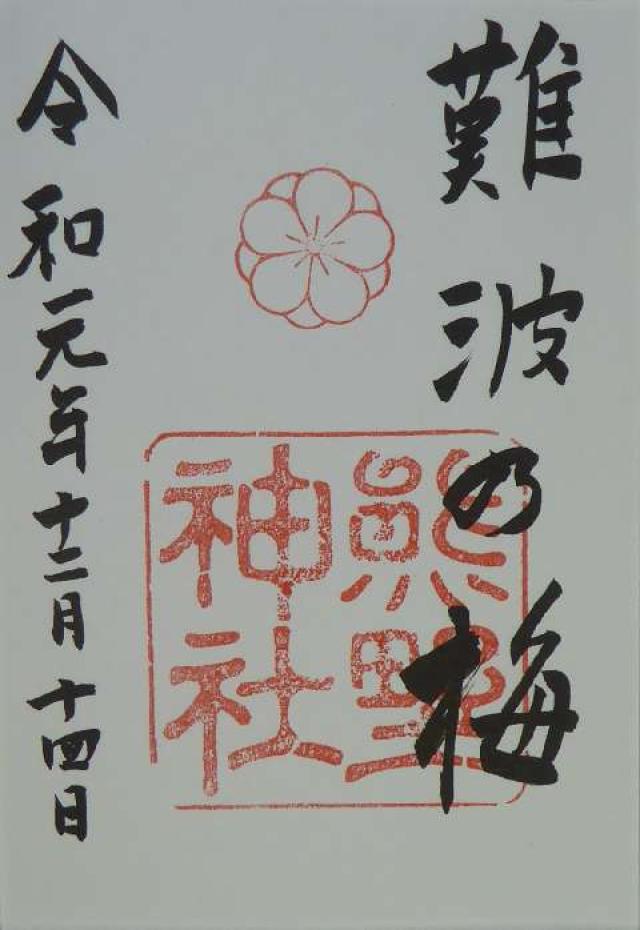 難波乃梅
熊野
神社
令和元年十二月十四日